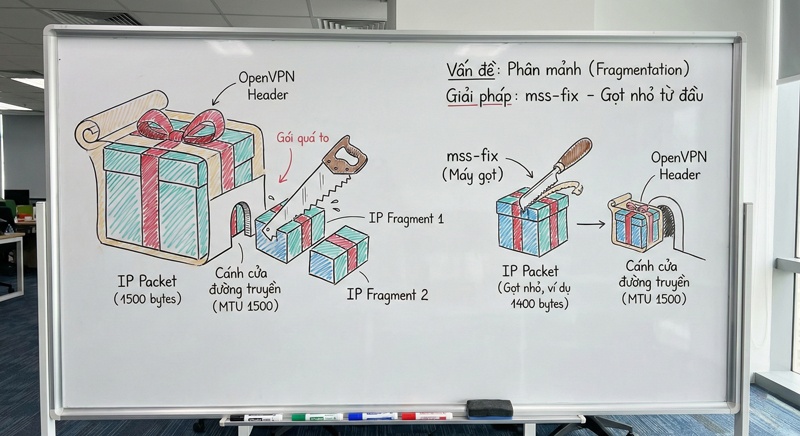 Vấn đề: Phân mảnh (Fragmentation)
Giải pháp: mss-fix - Gọt nhỏ từ đầu
OpenVPN
Header
Gói quá to
IP Fragment 1
IP Fragment 2
IP Packet
(1500 bytes)
Cánh cửa
đường truyền
(MTU 1500)
mss-fix
(Máy gọt)
OpenVPN
Header
IP Packet
(Gọt nhỏ, ví dụ
1400 bytes)
Cánh cửa
đường truyền
(MTU 1500)